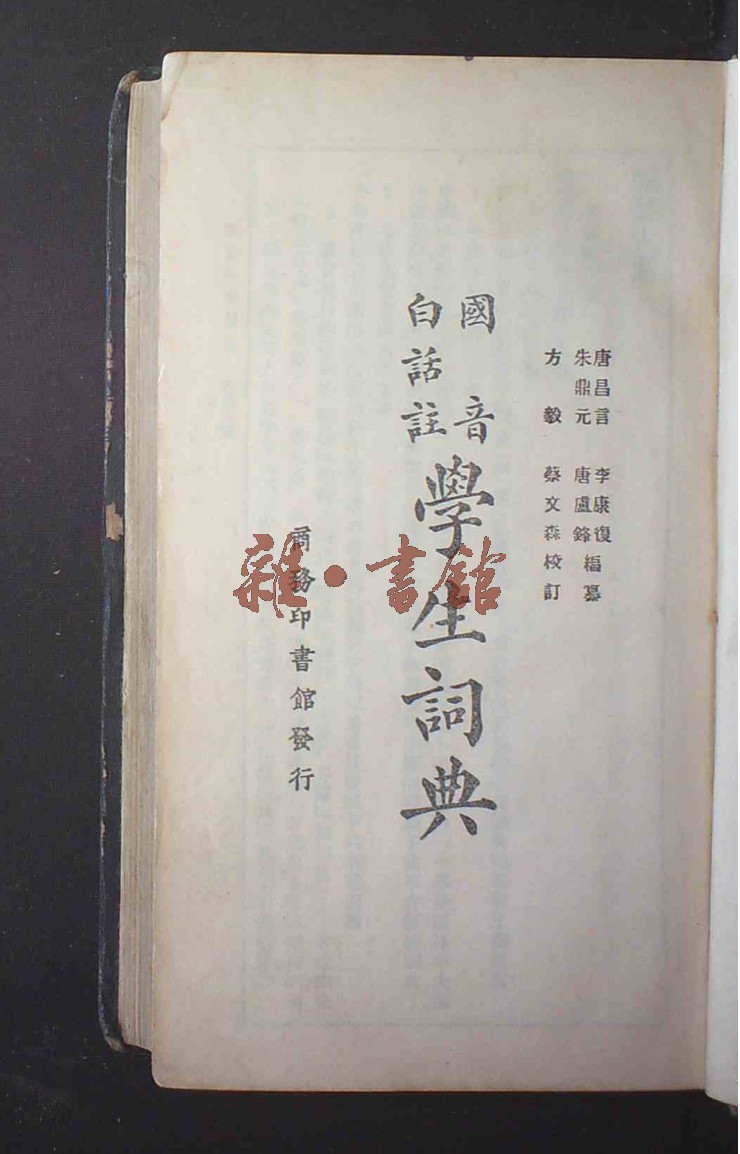 唐昌言 李康復
朱鼎元 唐盧鋒 編纂
方毅 蔡文森校訂
國音
白話註
學生詞典
商務印書館發行
雜·書館